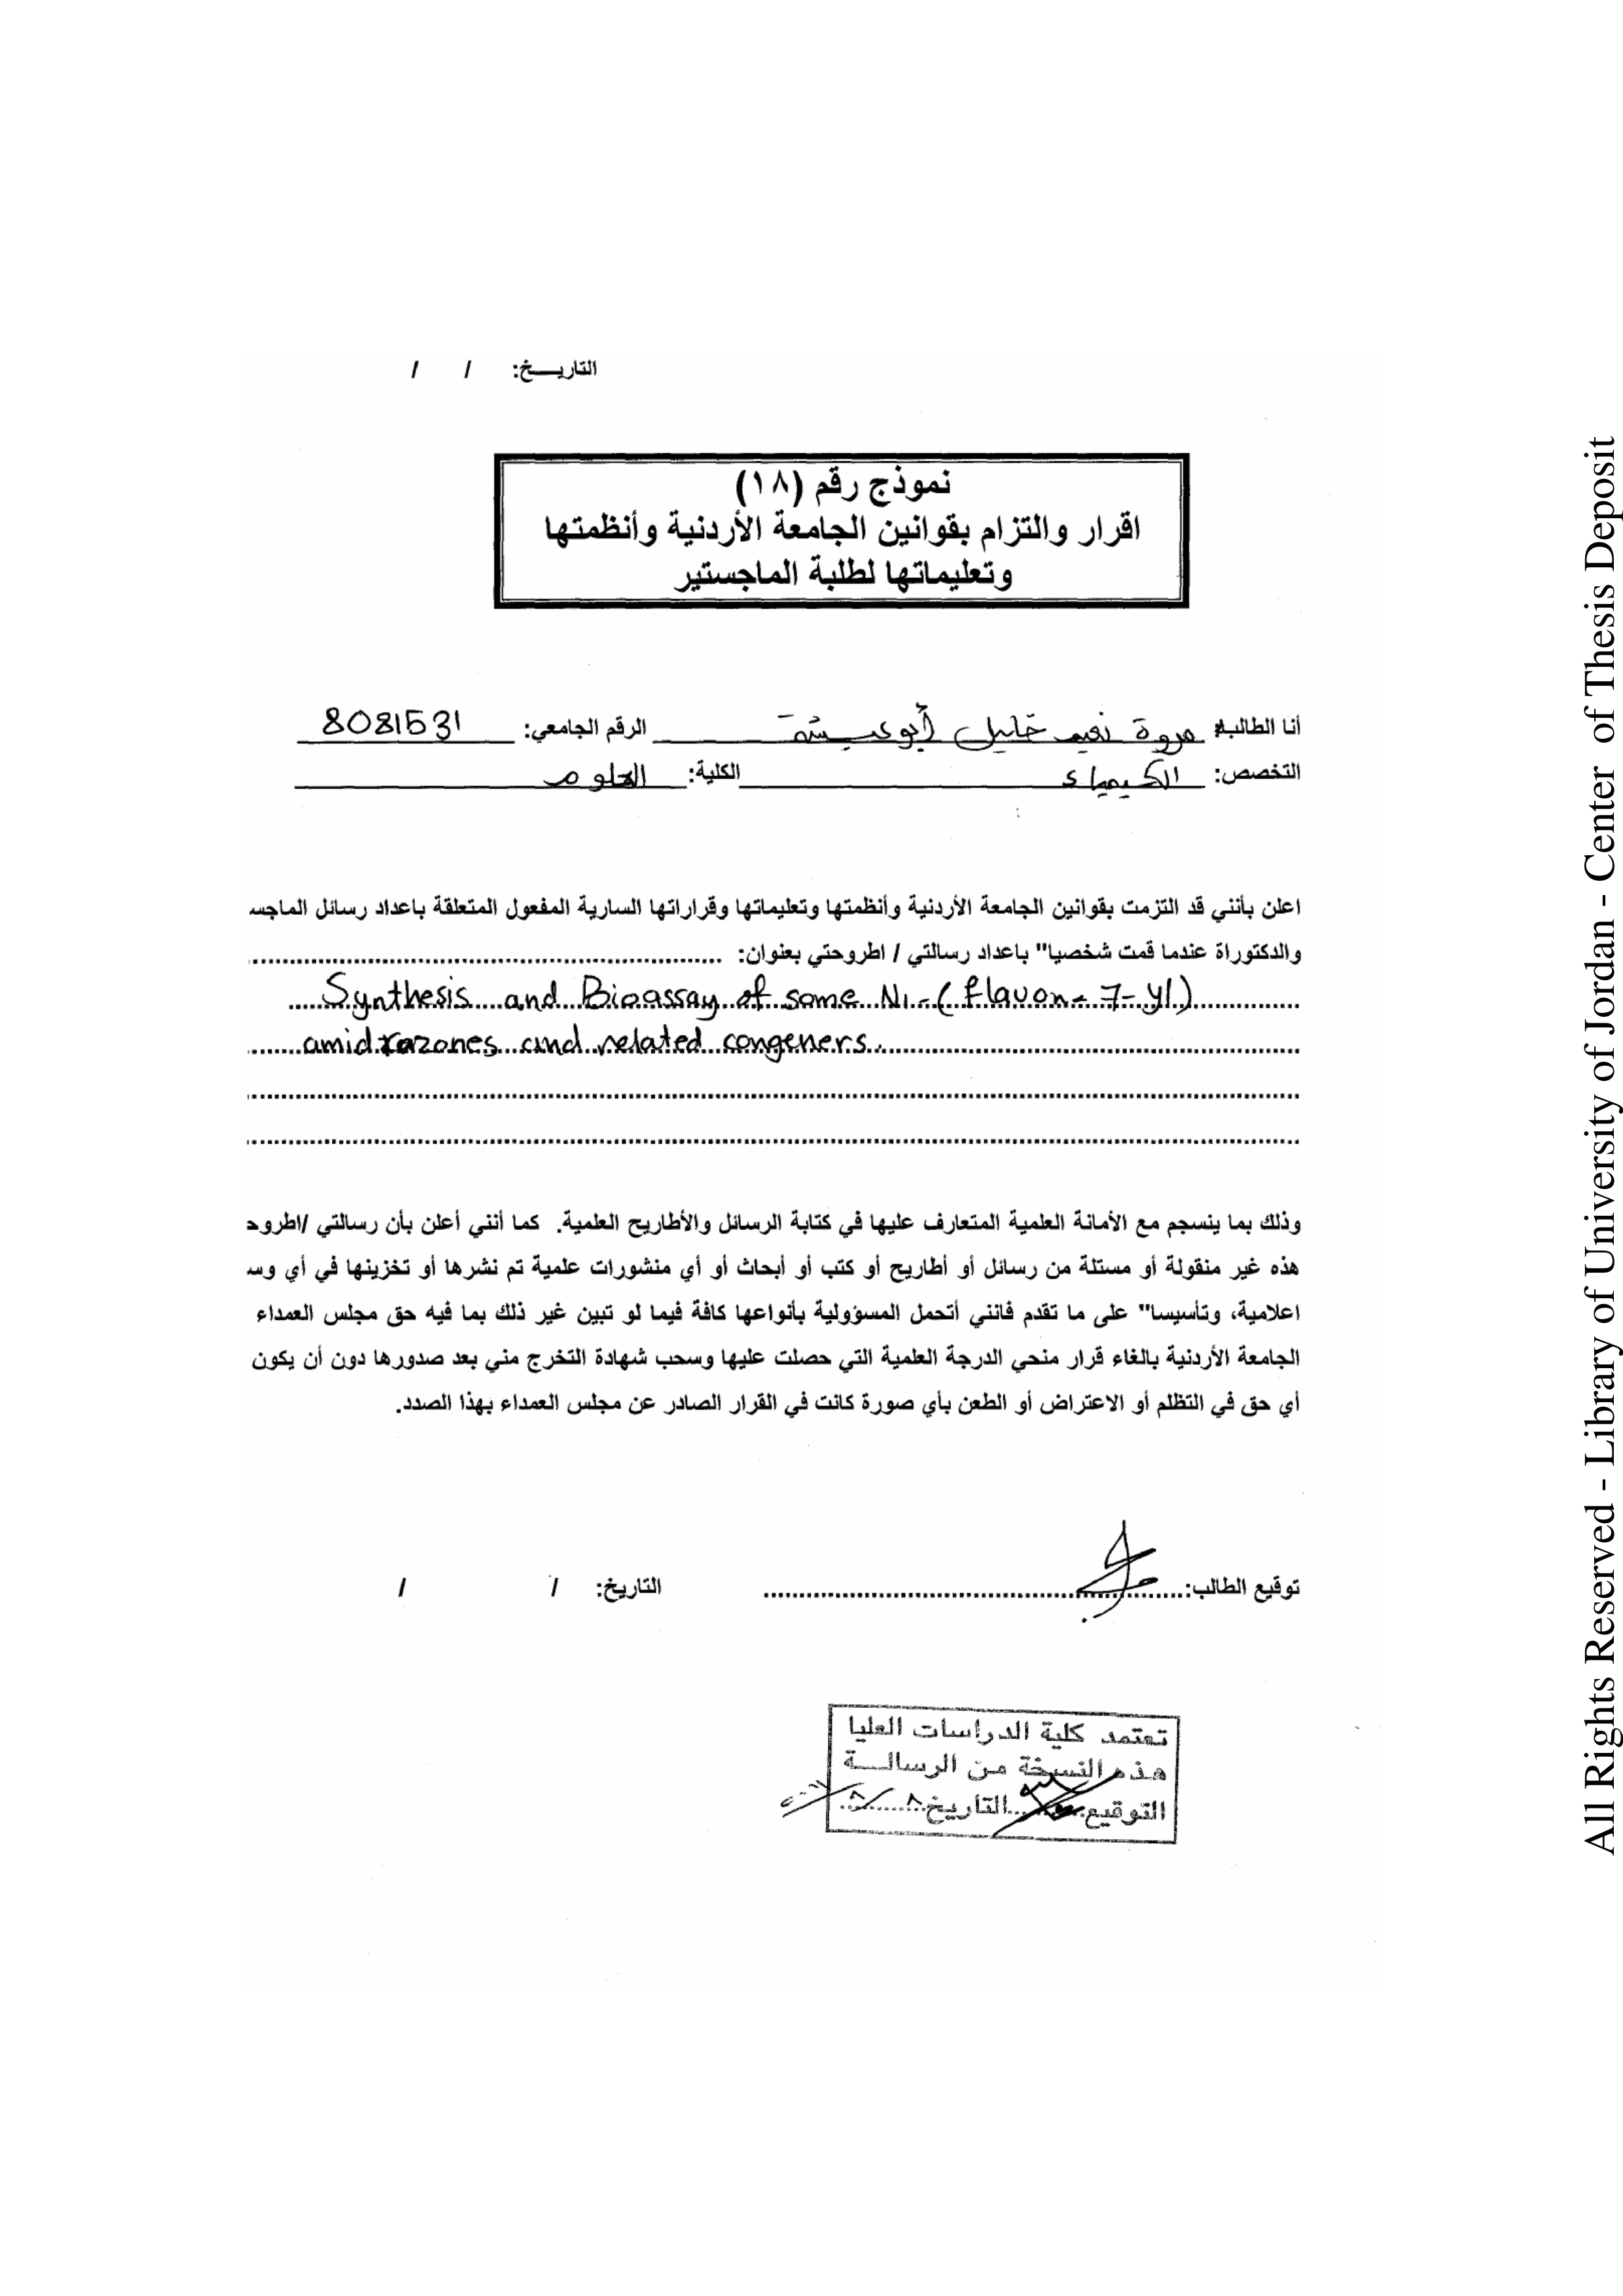 التاريـــخ: / /
نموذج رقم (١٨)
اقرار والتزام بقوانين الجامعة الأردنية وأنظمتها
وتعليماتها لطلبة الماجستير
أنا الطالبة: مروة نعيم خليل أبو عيشة الرقم الجامعي: 8081531
التخصص: الكيمياء الكلية: العلوم
اعلن بأنني قد التزمت بقوانين الجامعة الأردنية وأنظمتها وتعليماتها وقراراتها السارية المفعول المتعلقة باعداد رسائل الماجس
والدكتوراة عندما قمت شخصيا" باعداد رسالتي / اطروحتي بعنوان:
Synthesis and Bioassay of some N1-(flavon-7-yl)
amidrazones and related congeners.
وذلك بما ينسجم مع الأمانة العلمية المتعارف عليها في كتابة الرسائل والأطاريح العلمية. كما أنني أعلن بأن رسالتي /اطروح
هذه غير منقولة أو مستلة من رسائل أو أطاريح أو كتب أو أبحاث أو أي منشورات علمية تم نشرها أو تخزينها في أي وس
اعلامية، وتأسيسا" على ما تقدم فانني أتحمل المسؤولية بأنواعها كافة فيما لو تبين غير ذلك بما فيه حق مجلس العمداء
الجامعة الأردنية بالغاء قرار منحي الدرجة العلمية التي حصلت عليها وسحب شهادة التخرج مني بعد صدورها دون أن يكون
أي حق في التظلم أو الاعتراض أو الطعن بأي صورة كانت في القرار الصادر عن مجلس العمداء بهذا الصدد.
توقيع الطالب: التاريخ: / /
تعتمد كلية الدراسات العليا
هذه النسخة من الرسالــة
التوقيع التاريخ ٨/٨
All Rights Reserved - Library of University of Jordan - Center of Thesis Deposit